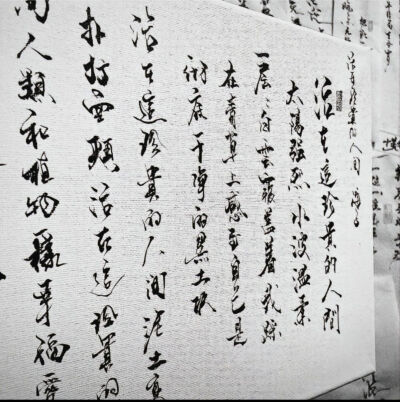 活在珍貴的人间 海子
活在這珍貴的人间
太陽强烈 水波温柔
一层々白雲覆蓋着 我踩
在青草上感到自己是
彻底干净的黑土块
活在這珍貴的人间 泥土高
扑打面頰 活在這珍貴的
间 人類和植物一樣幸福